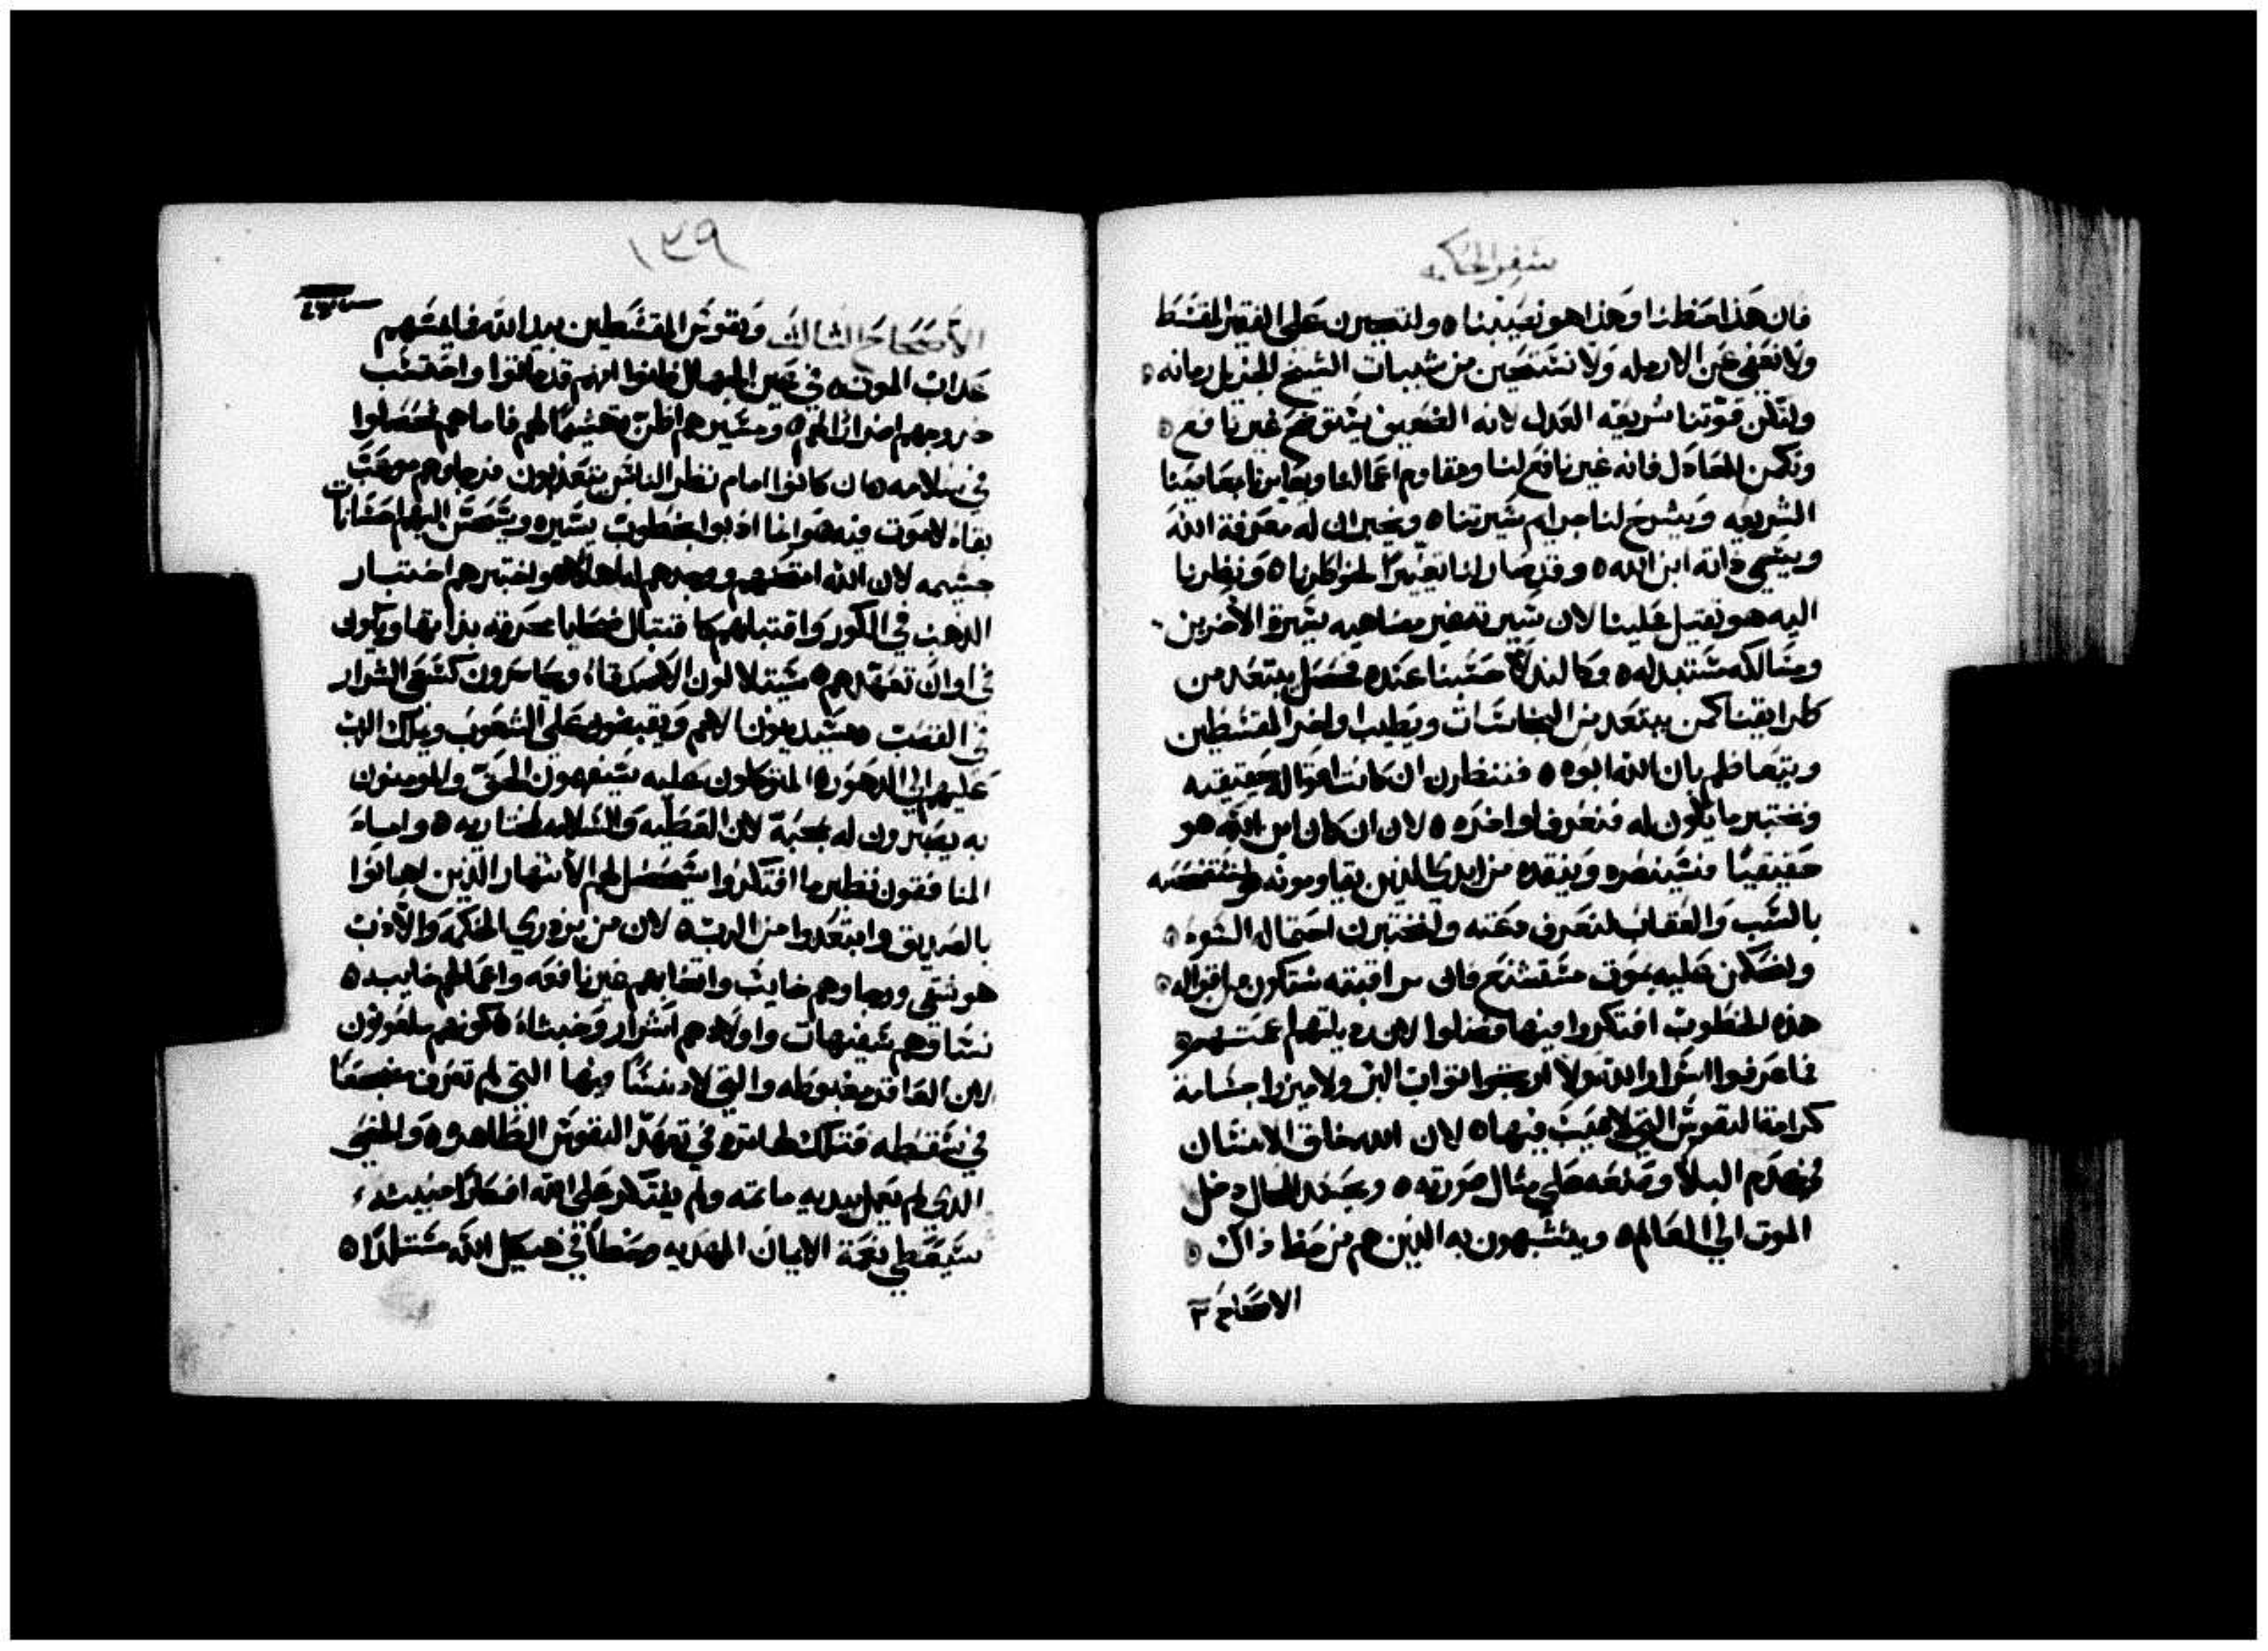 سفر الحكمه
فان هذا حظنا وهذا هو نصيبنا ٥ ولنتجبرن على الفقير المقسط
ولا نعفي عن الارمله ولا نستحين من شيبات الشيخ الجزيل زمانه ٥
ولتكن قوتنا شريعة العدل لانه الضعيف يتوضح غير نافع ٥
ونكمن للعادل فانه غير نافع لنا ومقاوم اعمالنا ويعايرنا بمعاصينا
الشريعه ويشرح لنا جرايم سيرتنا ٥ ويخبر ان له معرفة الله
ويسمي ذاته ابن الله ٥ وقد صار لنا تعييرًا لافكارنا ٥ ونظرنا
اليه هو ثقيل علينا لان سيرته غير مضاهيه سيرة الاخرين
ومسالكه مستبدله ٥ وكالندلا حسبنا عنده فحصل يبتعد من
طرايقنا كمن يبتعد من النجاسات ويطيب اواخر المقسطين
ويتعاظم بان الله ابوه ٥ فننظرن ان كانت اقواله حقيقيه
ونختبر ما يكون له فنعرف اواخره ٥ لان ان كان ابن الله هو
حقيقيًا فسينصره وينقذه من ايدي الذين يقاومونه
بالسب والعقاب لنعرف دعته ولنختبرن احتماله السوء ٥
ولنحكمن عليه بموت مستشنع فان مراقبته ستكون من اقواله ٥
هذه الخطوب افتكروا فيها فضلوا لان رذيلتهم اعمتهم ٥
فما عرفوا اسرار الله ولا ارتجوا ثواب البر ولا ميزوا جسامة
كرامة النفوس التي لا عيب فيها ٥ لان الله خلق الانسان
في عدم البلا وصنعه على مثال صورته ٥ وبحسد المحال دخل
الموت الى العالم ٥ ويتشبهون به الذين هم من حظ ذاك ٥
الاصحاح ٣
١٣٩
الاصحاح الثالث ونفوس المقسطين بيد الله فما يمسهم
عذاب الموت ٥ في عين الجهال ظنوا انهم قد ماتوا واحتسب
خروجهم اضرارًا لهم ٥ ومسيرهم اظن تهشيمًا لهم فاما هم فحصلوا
في سلامه ٥ وان كانوا امام نظر الناس يتعذبون فرجاوهم موعب
بقاء لا موت فيه ٥ وانما ادبوا بخطوب يسيره ويحسن اليهم احسانات
جسيمه لان الله امتحنهم ووجدهم اهلاً له ٥ واختبرهم اختبار
الذهب في الكور واقتبلهم كاقتبال ضحايا محرقه بذاتها ويكون
في اوان تعهدهم ٥ سيتلالون الاصدقاء ويحاضرون كسعي الشرار
في القصب ٥ سيدينون الامم ويقبضون على الشعوب ويملك الرب
عليهم الى الدهور ٥ المتوكلون عليه سيفهمون الحق والمومنون
به يصبرون له بمحبة لان العطيه والسلامه لمختاريه ٥ واما
المنافقون نظير ما افتكروا سيحصل لهم الانتهار الذين اهانوا
بالصديق وابتعدوا من الرب ٥ لان من يزدري الحكمه والادب
هو شقي ورجاوهم خايب واتعابهم غير نافعه واعمالهم خايبه ٥
نساوهم سفيهات واولادهم اشرار وخبثاء ٥ كونهم ملعونون
لان العاقر مغبوطه والتي لا دنسًا فيها التي لم تعرف مضجعًا
في سقطه فتلك لها ثمره في تعهد النفوس الطاهره ٥ والخصي
الذي لم يعمل بيديه ماثمه ولم يفتكر على الله افكارًا خبيثه
سيعطى نعمة الايمان المهديه وحظًا في هيكل الله مستلذًا ٥